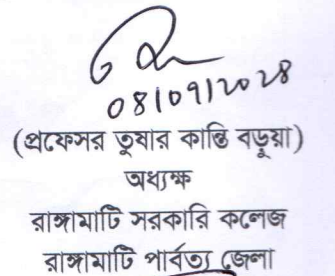 ০৪।০৭।২০২৪
(প্রফেসর তুষার কান্তি বড়ুয়া)
অধ্যক্ষ
রাঙ্গামাটি সরকারি কলেজ
রাঙ্গামাটি পার্বত্য জেলা